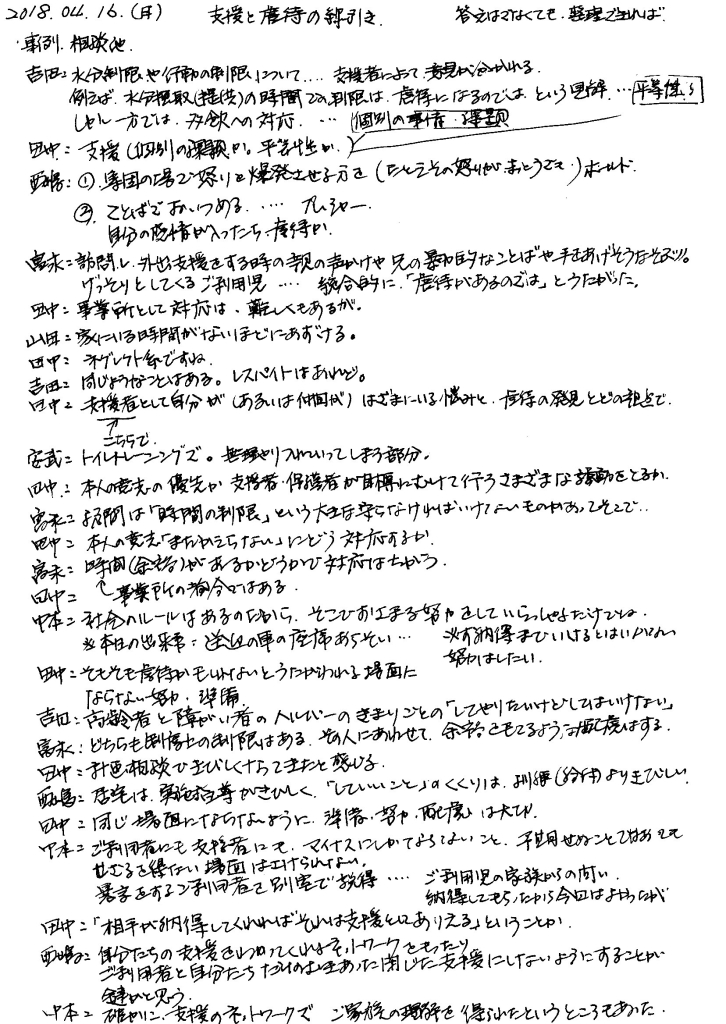 2018.04.16.(月) 支援と虐待の線引き. 答えはでなくても、整理できれば
・事例. 相談他
吉田: 水分制限や行動の制限について.... 支援者によって、意見が分かれる.
例えば、水分摂取(提供)の時間での制限は、虐待になるのでは、という見解 ... 平等性
しかし一方では、多飲への対応. ... 個別の事情・課題
田中: 支援(個別の課題か。平等性か.
西嶋: ①. 集団の場で怒りを爆発させる方を(たとえその怒りがまっとうでも・)ホールド.
②. ことばでおいつめる. .... プレッシャー.
自分の感情が入ったら、虐待か.
富永= 訪問し、外出支援をする時の親の声かけや兄の暴力的なことばや手をあげそうなそぶり。
げっそりとしてくるご利用児 .... 総合的に、「虐待があるのでは」とうたがった。
田中= 事業所として対応は、難しくもあるが。
山田= 家にいる時間がないほどにあずける。
田中: ネグレクト系ですね.
吉田= 同じようなことはある。レスパイトはあれど。
田中= 支援者として自分が(あるいは仲間が)はざまにいる悩みと、虐待の発見とどの視点で.
↑
こちらで.
安武= トイレトレーニングで。無理やり入れていってしまう部分.
田中: 本人の意志の優先か 支援者・保護者が目標にむけて行うさまざまな援助をとるか.
富永= 訪問は「時間の制限」という大きな守らなければいけないものがあってそこで..
田中= 本人の意志「まだかえらない」にどう対応するか.
富永= 時間(余裕)があるかどうかで対応はちがう.
田中= ↑事業所の都合ではある.
中本= 社会のルールはあるのだから、そこでおさまる努力をしていらっしゃるだけでね.
※本日の出来事: 送迎の車の座席あらそい... 必ず納得までいけるとはいかない
努力はしたい.
田中: そもそも虐待かもしれないとうたがわれる場面に
ならない努力・準備
吉田: 高齢者と障がい者のヘルパーのきまりごとの「してやりたいけどしてはいけない」
富永: どちらも制度上の制限はある、その人にあわせて、余裕をもてるような配慮はする.
田中= 計画相談できびしくなってきたと感じる.
西嶋= 居宅は、実施指導がきびしく、「していいこと」のくくりは、訓練(給付)よりきびしい
田中= 同じ場面にならないように、準備・努力・配慮は大切.
中本= ご利用者にも支援者にも、マイナスにしかならないこと、不用せぬことではあっても
せざるを得ない場面はさけられない.
暴言をするご利用者を別室で説得 .... ご利用児の家族からの問い
納得してもらったから今回はよかったが
田中= 「相手が納得してくれればそれは支援としてありえる」ということか.
西嶋= 自分たちの支援をわかってくれるネットワークをもったり
ご利用者と自分たちだけの閉じた支援にしないようにすることが
鍵かと思う.
中本= 確かに、支援のネットワークで ご家族の理解を得られたというところもあった.